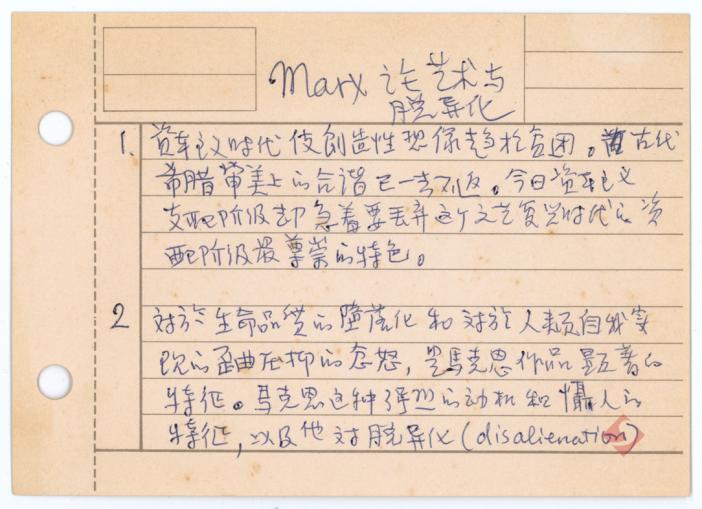 Marx 论艺术与
脱异化
1. 资本主义时代使創造性想像趋於贫困。古代
希腊审美上的合谐已一去不返。今日资本主义
支配阶级却急着要丢弃这个文艺复兴时代的资
配阶级最尊崇的特色。
2 对於生命品质的堕落化和对於人类自我实
现的歪曲压抑的忿怒，是馬克思作品显著的
特征。马克思这种强烈的动机和懾人的
特征，以及他对脱异化(disalienation)